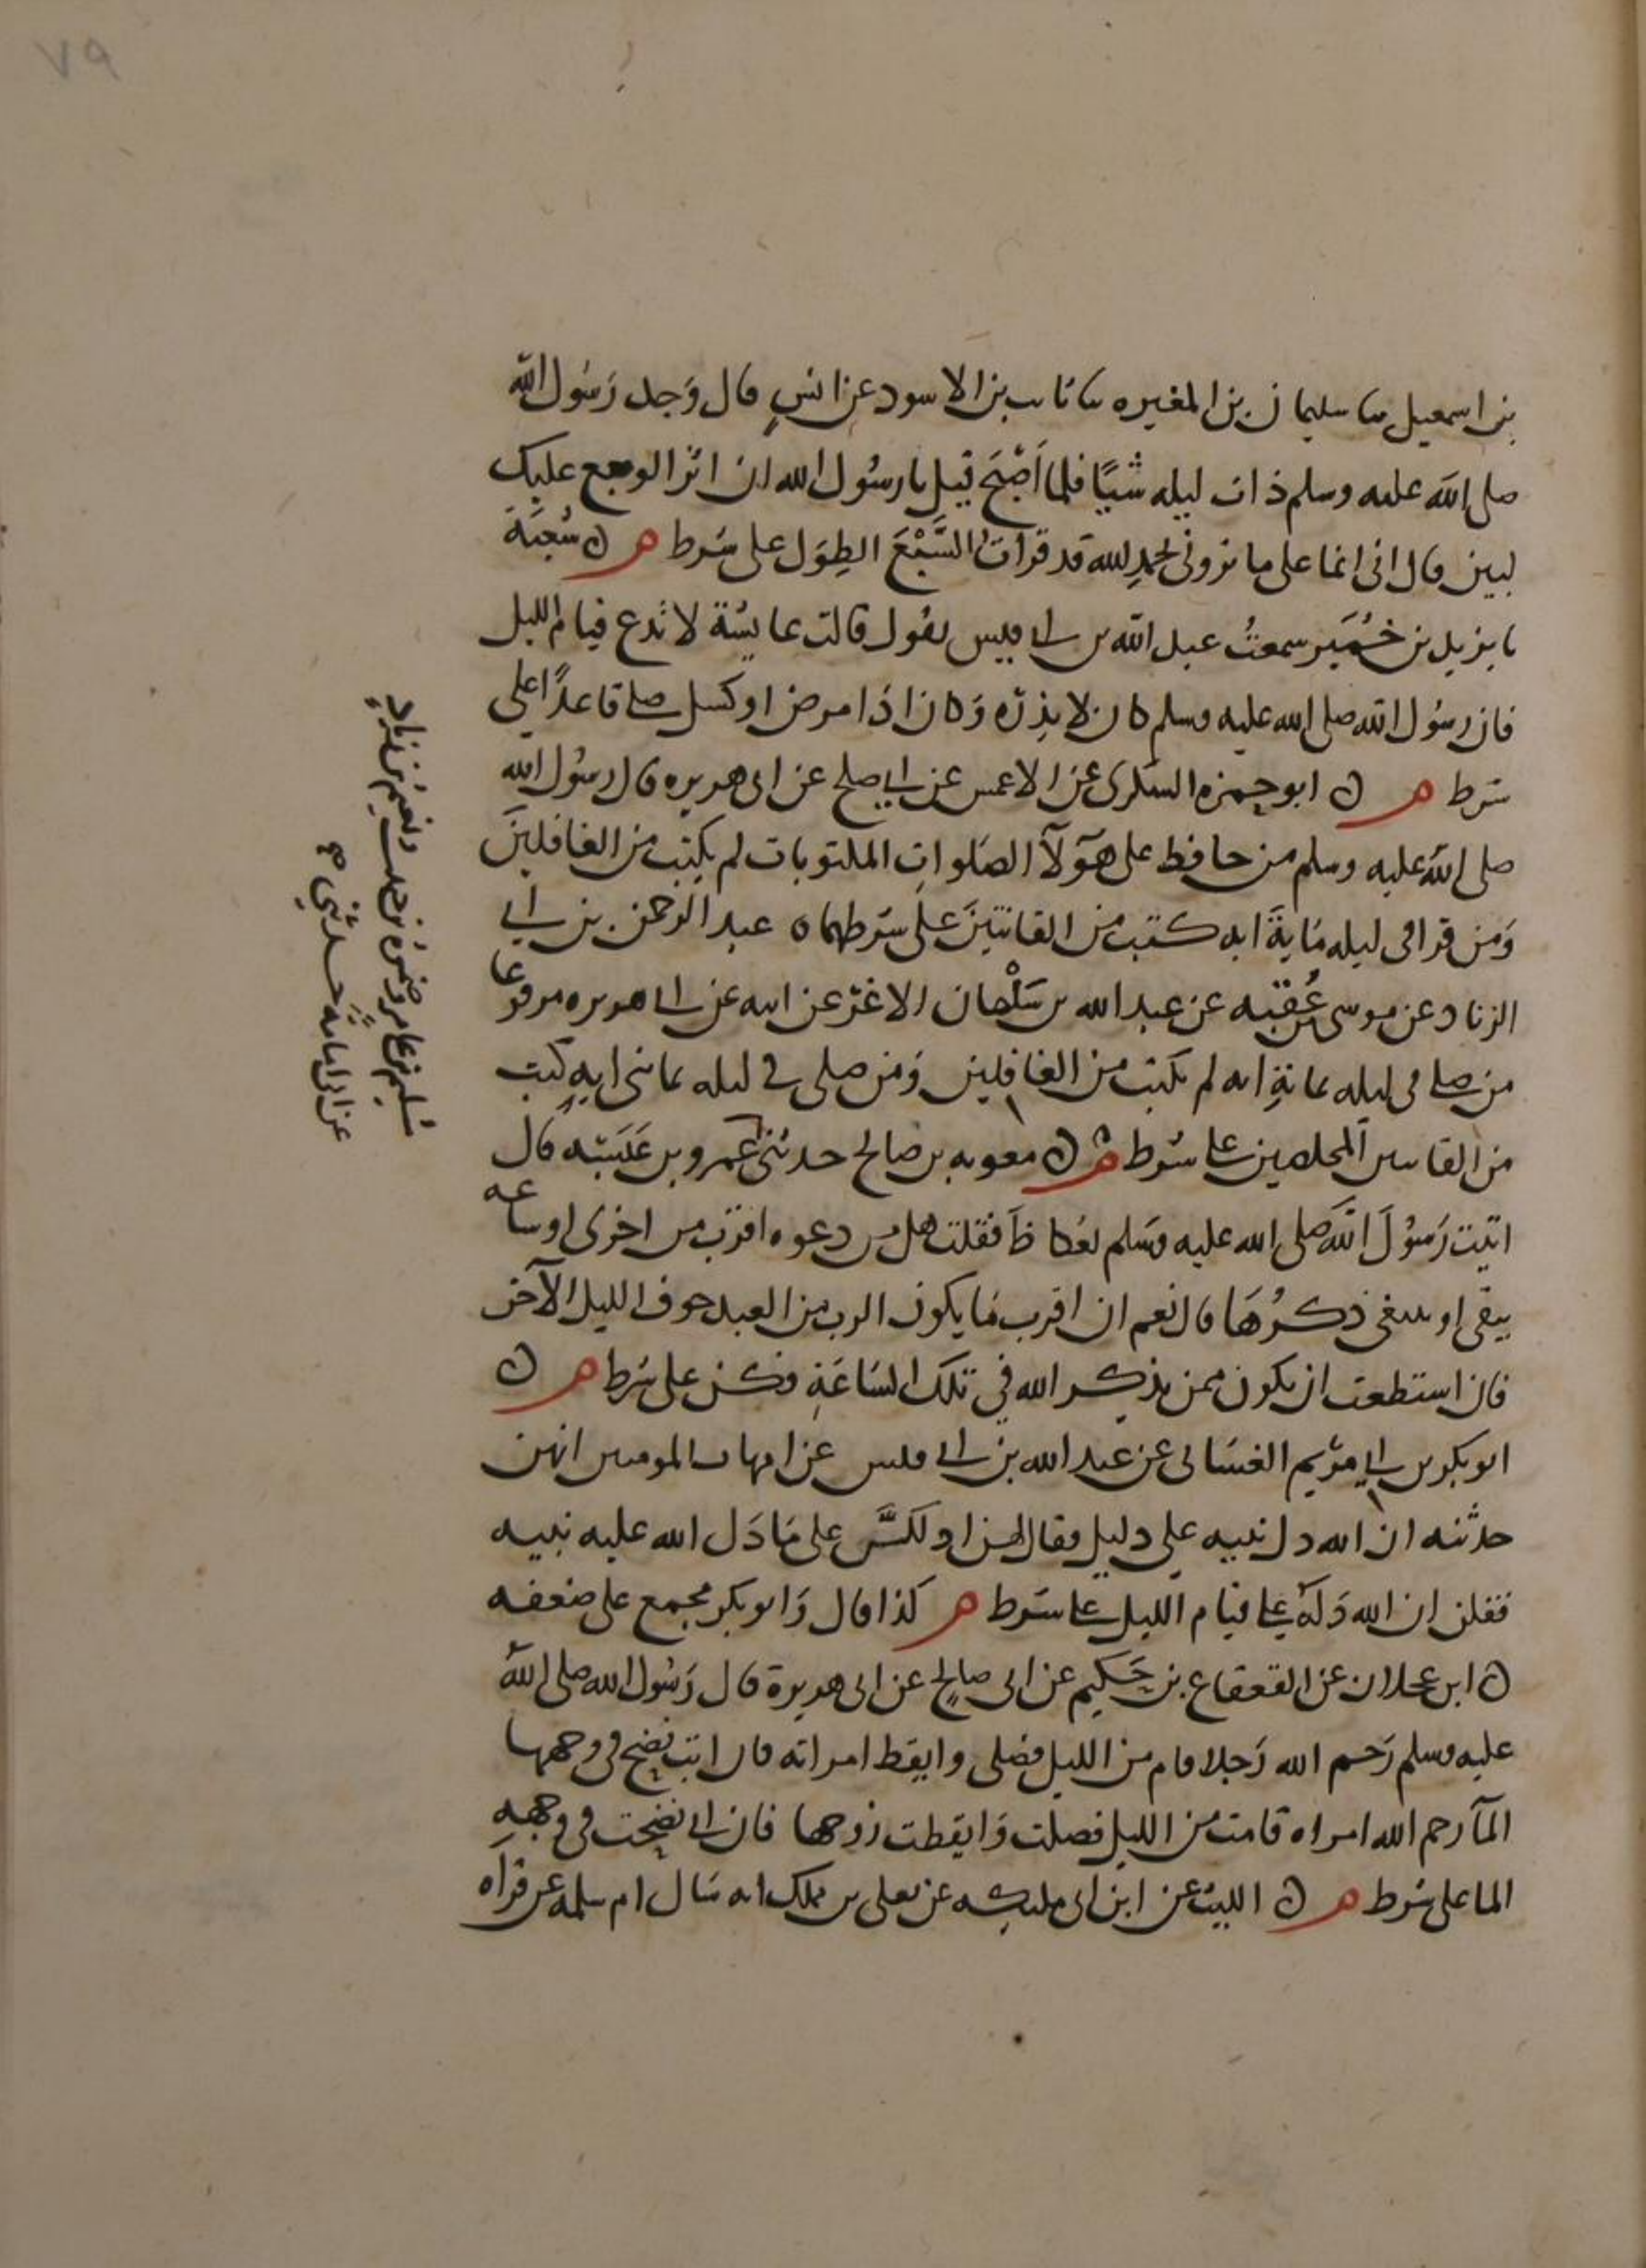 ٧٩
بن اسمعيل سا سليمان بن المغيره سا ثابت بن الاسود عن انسٍ قال وَجد رَسُول الله
صلى الله عليه وسلم ذات ليله شيًا فلما اَصْبَح قيل يا رسُول الله ان اثر الوجع عليك
لبين قال انى انما على ما ترونى بحمدِ لله قد قرات السَّبْعَ الطِوَل على شرط م ن شُعبَةَ
نا يزيد بن خُمَير سمعتُ عبد الله بن ابي قيس يقول قالت عايشة لا تدع قيام الليل
فان رسُول الله صلى الله عليه وسلم كان لا يذرُه وَكان اذا مرض او كسل صلى قاعدًا على
شرط م ن ابو حمزه السكرى عن الاعمش عن ابي صلح عن ابى هريره قال رسُول الله
صلى الله عليه وسلم من حافظ على هَوُلآ الصَلواتِ المكتوبات لم يكتب من الغافلينَ
وَمن قرا فى ليله مَايةَ ايه كتب من القانتينَ على شرطهما ه عبد الرحمن بن ابي
الزناد عن موسى بن عُقبه عن عبد الله بن سَلْمان الاغرّ عن ابيه عن ابي هريره مرفوعا
من صلى فى ليله بمايةِ ايه لم يكتب من الغافلين وَمن صلى في ليله بماتى ايه كتب
من القانتين المخلصين على شرط م ن معويه بن صالح حدثنى عَمرو بن عَبَسَه قال
اتيت رَسُولَ الله صلى الله عليه وسَلم بعُكاظَ فقلت هل من دعوه اقرب من اخرى او ساعه
يبقى او ينبغى ذكرُهَا قال نعم ان اقرب مَا يكون الرب من العبد جوف الليل الآخر
فان استطعت ان تكون ممن يذكر الله في تلك السَاعَةِ فكن على شرط م ن
ابو بكر بن ابي مرْيم الغسَانى عن عبد الله بن ابي قيس عن امهات المومنين انهن
حدثنه ان الله دل نبيه على دليل فقال لهن اولكنَّ على مَا دَل الله عليه نبيه
فقلن ان الله دَلَهُ على قيام الليل على شرط م كذا قال وَابو بكر مجمع على ضعفه
ن ابن عجلان عن القعقاع بن حَكيم عن ابى صالحٍ عن ابى هريرة قال رَسُول الله صلى الله
عليه وسلم رَحم الله رَجلا قام من الليل فصلى وايقظ امراته فان ابت نضح فى وجهها
المآ رحم الله امراه قامت من الليل فصلت وَايقظت زوجها فان ابي نضحت فى وجههِ
الما على شرط م ن الليث عن ابن ابى مليكه عن يعلى بن مملك انه سَال ام سلمه عن قراه
سُليم بن عامر وضمرَه بن حبيب ونعيم بن زيادٍ
عن ابى امامَةَ حدثني صح